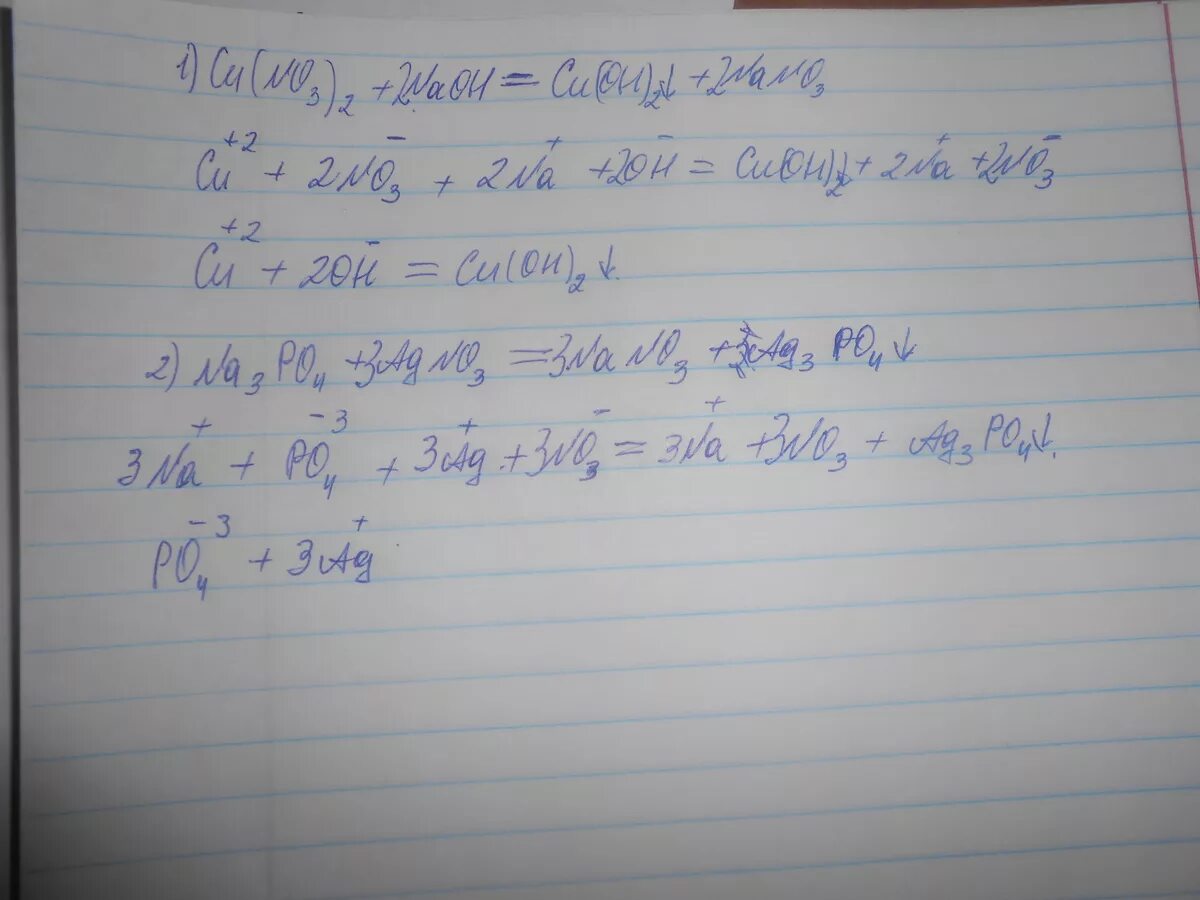 1) Cu(NO₃)₂ + 2NaOH = Cu(OH)₂↓ + 2NaNO₃
Cu⁺² + 2NO₃⁻ + 2Na⁺ + 2OH⁻ = Cu(OH)₂↓ + 2Na⁺ + 2NO₃⁻
Cu⁺² + 2OH⁻ = Cu(OH)₂↓.
2) Na₃PO₄ + 3AgNO₃ = 3NaNO₃ + Ag₃PO₄↓
3Na⁺ + PO₄⁻³ + 3Ag⁺ + 3NO₃⁻ = 3Na⁺ + 3NO₃ + Ag₃PO₄↓.
PO₄⁻³ + 3Ag⁺